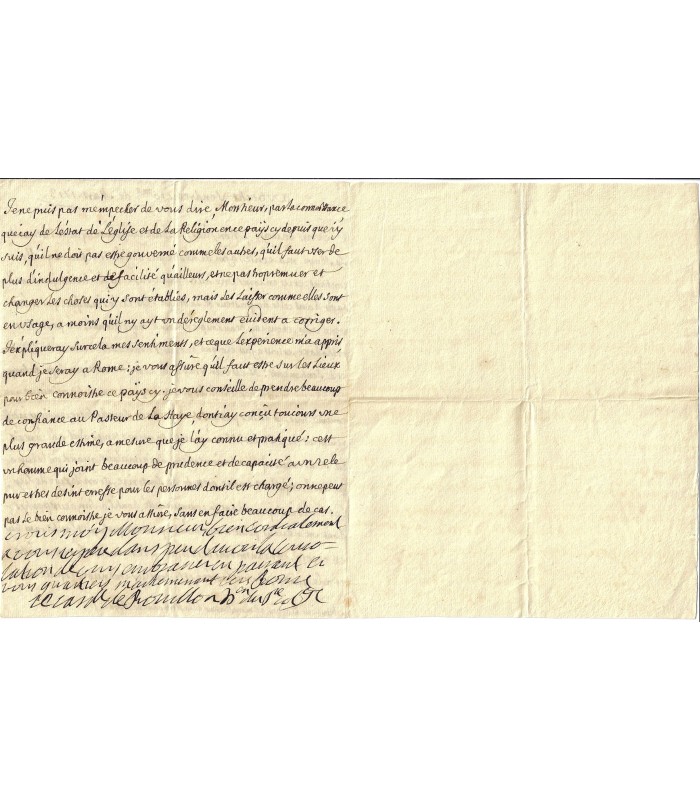 Je ne puis pas m'empecker de vous dire, Monsieur, par la connoissance
que i'ay de L'estat de L'église et de La Religion en ce païs cy depuis que i'y
suis, qu'il ne doit pas estre gouverné comme les autres, qu'il faut vser de
plus d'indulgence et de facilité qu'ailleurs, et ne pas trop remuer et
changer les choses qui y sont établies, mais les Laisser comme elles sont
en vsage, a moins qu'il n'y ayt vn déréglement évident a corriger.
J'expliqueray sur cela mes sentiments, et ce que L'expérience m'a appris
quand je seray a Rome: je vous assure qu'il faut estre sur les Lieux
pour bien connoistre ce païs cy. je vous conseille de prendre beaucoup
de confiance au Pasteur de La Haye, dont i'ay conçu tousours vne
plus grande estime, a mesure que je L'ay connu et pratiqué: c'est
vn homme qui joint beaucoup de prudence et de capacité a vn zele
pur et tres desinteressé pour les personnes dont il est chargé; on ne peut
pas le bien connoistre je vous assure, sans en faire beaucoup de cas.
moy Monsieur bien cordialement
dans peu la conso-
lation de vous embrasser en passant et
vous Rome
le card. de Bouillon